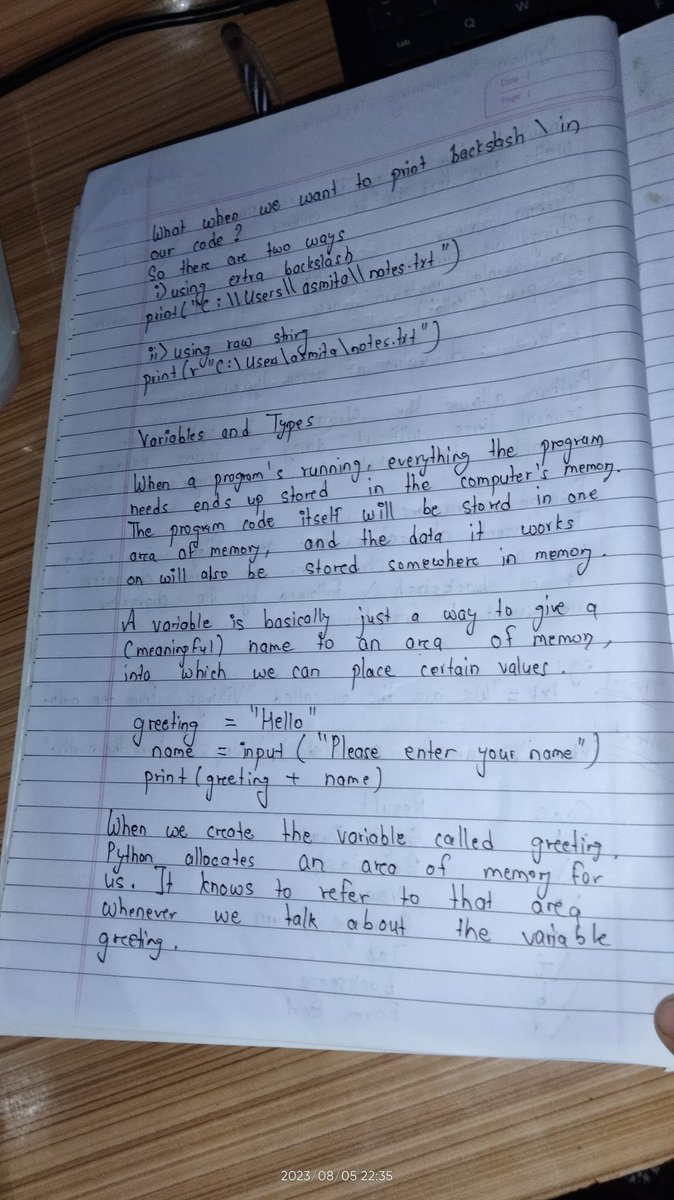 tab
Q
W
Date
Page
What when we want to print backslash \ in
our code?
So there are two ways
i) using extra backslash
print("C:\\Users\\asmita\\notes.txt")
ii) using raw string
print(r"C:\Users\asmita\notes.txt")
Variables and Types
When a program's running, everything the program
needs ends up stored in the computer's memory.
The program code itself will be stored in one
area of memory, and the data it works
on will also be stored somewhere in memory.
A variable is basically just a way to give a
(meaningful) name to an area of memory,
into which we can place certain values.
greeting = "Hello"
name = input ("Please enter your name")
print (greeting + name)
When we create the variable called greeting,
Python allocates an area of memory for
us. It knows to refer to that area
whenever we talk about the variable
greeting.
2023/08/05 22:35